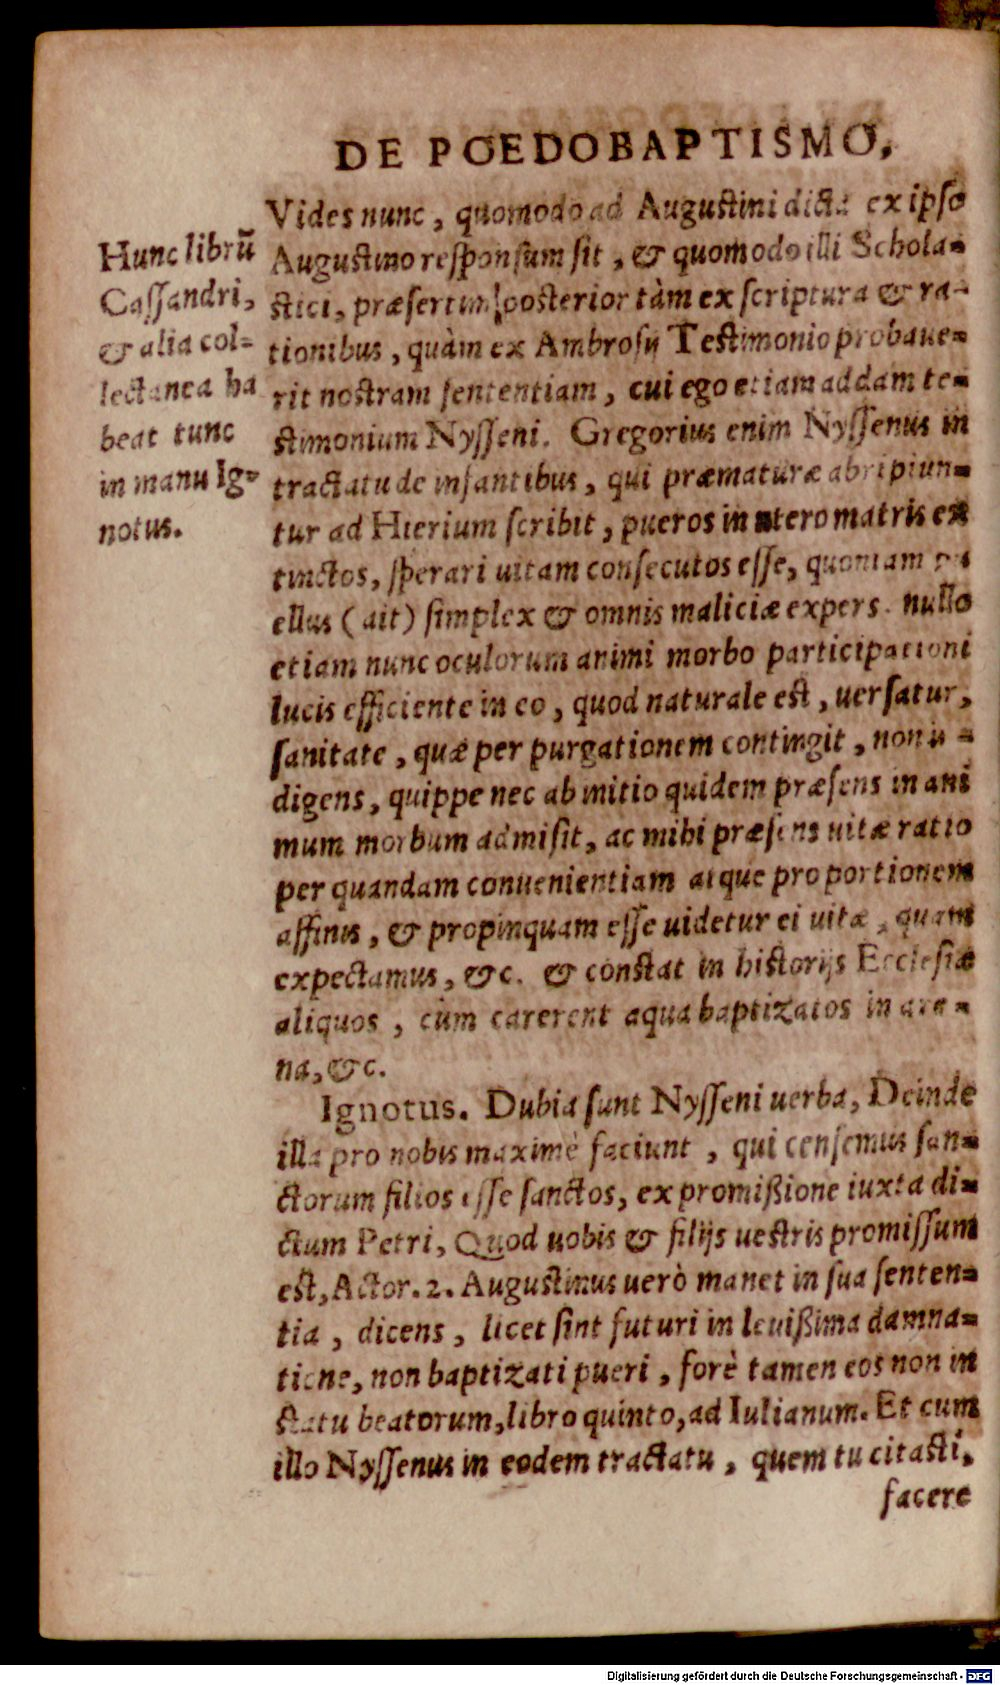 DE POEDOBAPTISMO,
Hunc librū
Cassandri,
& alia col-
lectanea ha
beat tunc
in manu Ig-
notus.
Vides nunc, quomodo ad Augustini dicta ex ipso
Augustino responsum sit, & quomodo illi Schola-
stici, præsertim posterior tàm ex scriptura & ra-
tionibus, quàm ex Ambrosij Testimonio probaue-
rit nostram sententiam, cui ego etiam addam te-
stimonium Nysseni. Gregorius enim Nyssenus in
tractatu de infantibus, qui præmaturæ abripiun-
tur ad Hierium scribit, pueros in utero matris ex
tinctos, sperari uitam consecutos esse, quoniam pu
ellus (ait) simplex & omnis maliciæ expers. nullo
etiam nunc oculorum animi morbo participationi
lucis efficiente in eo, quod naturale est, uersatur,
sanitate, quæ per purgationem contingit, non in-
digens, quippe nec ab initio quidem præsens in ani
mum morbum admisit, ac mihi præsens uitæ ratio
per quandam conuenientiam atque proportionem
affinis, & propinquam esse uidetur ei uitæ, quam
expectamus, &c. & constat in historijs Ecclesiæ
aliquos, cùm carerent aqua baptizatos in are-
na, &c.
Ignotus. Dubia sunt Nysseni uerba, Deinde
illa pro nobis maximè faciunt, qui censemus san-
ctorum filios esse sanctos, ex promißione iuxta di-
ctum Petri, Quod uobis & filijs uestris promissum
est, Actor. 2. Augustinus uerò manet in sua senten-
tia, dicens, licet sint futuri in leuißima damna-
tione, non baptizati pueri, forè tamen eos non in
statu beatorum, libro quinto, ad Iulianum. Et cum
illo Nyssenus in eodem tractatu, quem tu citasti,
facere
Digitalisierung gefördert durch die Deutsche Forschungsgemeinschaft - DFG